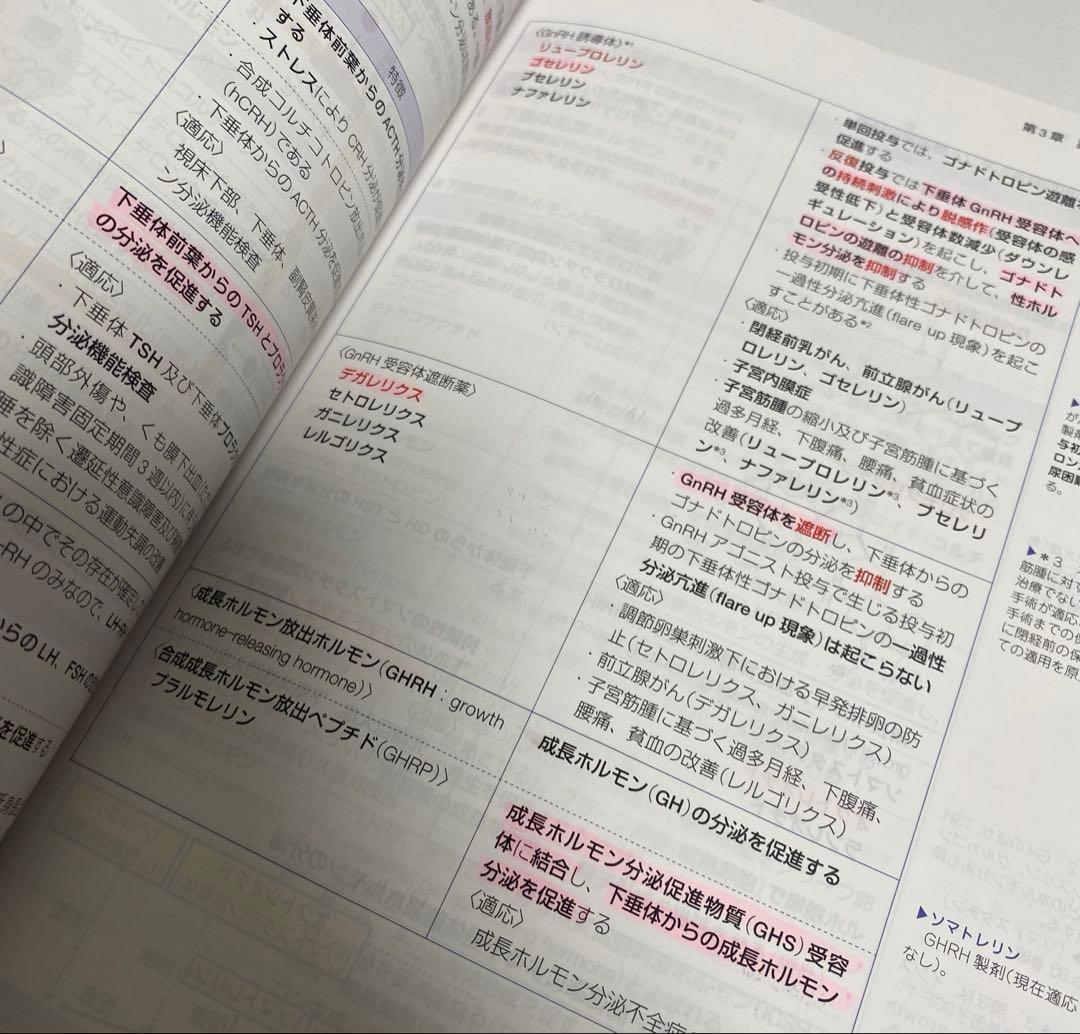 特徴
下垂体前葉からのACTH分
する
・ストレスによりCRH分泌が
・合成コルチコトロピン放出
(hCRH)である
・下垂体からのACTH分泌を
〈適応〉
視床下部、下垂体、副腎皮質
ン分泌機能検査
下垂体前葉からのTSHとプロラ
の分泌を促進する
〈適応〉
・下垂体TSH及び下垂体プロラク
分泌機能検査
・頭部外傷や、くも膜下出血
識障害固定期間3週以内に
睡を除く遷延性意識障害及び
性症における運動失調の改善
の中でその存在が確定して
-RHのみなので、LH-
らのLH、FSHの
を促進する
〈GnRH誘導体〉*1
リュープロレリン
ゴセレリン
ブセレリン
ナファレリン
〈GnRH受容体遮断薬〉
デガレリクス
セトロレリクス
ガニレリクス
レルゴリクス
〈成長ホルモン放出ホルモン(GHRH:growth
hormone-releasing hormone)〉
〈合成成長ホルモン放出ペプチド(GHRP)〉
プラルモレリン
第3章
・単回投与では、ゴナドトロピン遊離を
促進する
・反復投与では下垂体GnRH受容体へ
の持続刺激により脱感作(受容体の感
受性低下)と受容体数減少(ダウンレ
ギュレーション)を起こし、ゴナドト
ロピンの遊離の抑制を介して、性ホル
モン分泌を抑制する
・投与初期に下垂体性ゴナドトロピンの
一過性分泌亢進(flare up現象)を起こ
すことがある*2
〈適応〉
・閉経前乳がん、前立腺がん(リュープ
ロレリン、ゴセレリン)
・子宮内膜症
・子宮筋腫の縮小及び子宮筋腫に基づく
過多月経、下腹痛、腰痛、貧血症状の
改善(リュープロレリン*3、ブセレリ
ン*3、ナファレリン*3)
・GnRH受容体を遮断し、下垂体からの
ゴナドトロピンの分泌を抑制する
・GnRHアゴニスト投与で生じる投与初
期の下垂体性ゴナドトロピンの一過性
分泌亢進(flare up現象)は起こらない
〈適応〉
・調節卵巣刺激下における早発排卵の防
止(セトロレリクス、ガニレリクス)
・前立腺がん(デガレリクス)
・子宮筋腫に基づく過多月経、下腹痛、
腰痛、貧血の改善(レルゴリクス)
成長ホルモン(GH)の分泌を促進する
成長ホルモン分泌促進物質(GHS)受容
体に結合し、下垂体からの成長ホルモン
分泌を促進する
〈適応〉
成長ホルモン分泌不全症
が
製剤
与初
ロン
尿困難
る。
▶*3
筋腫に対
治療でない
手術が適応
手術までの保
に閉経前の保
ての適用を原
▶ソマトレリン
GHRH製剤(現在適応
なし)。